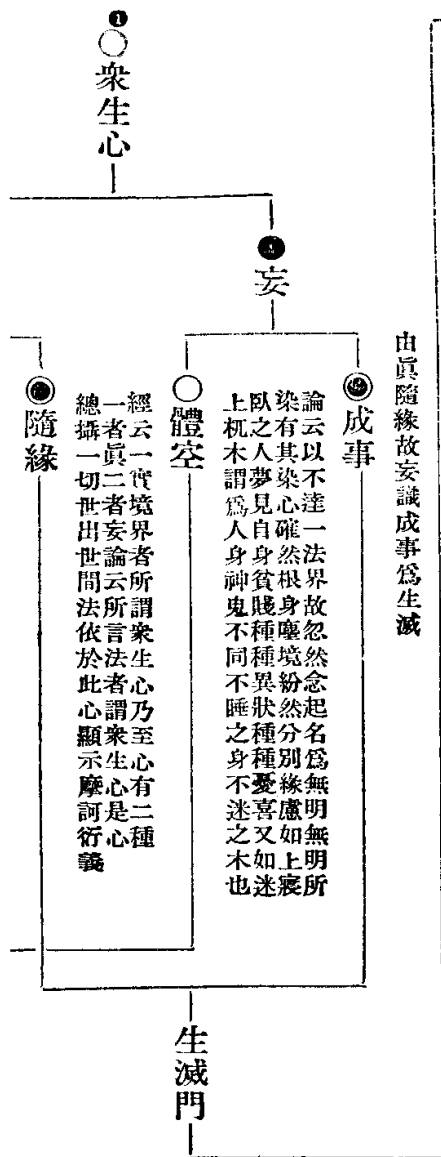 由眞隨緣故妄識成事爲生滅
成事
論云以不達一法界故忽然念起名爲無明無明所
染有其染心確然根身塵境紛然分別緣慮如上寢
臥之人夢見自身貧賤種種異狀種種憂喜又如迷
上杌木謂爲人身神鬼不同不睡之身不迷之木也
妄
體空
經云一實境界者所謂衆生心乃至心有二種
一者眞二者妄論云所言法者謂衆生心是心
總攝一切世出世間法依於此心顯示摩訶衍義
隨緣
衆生心
生滅門